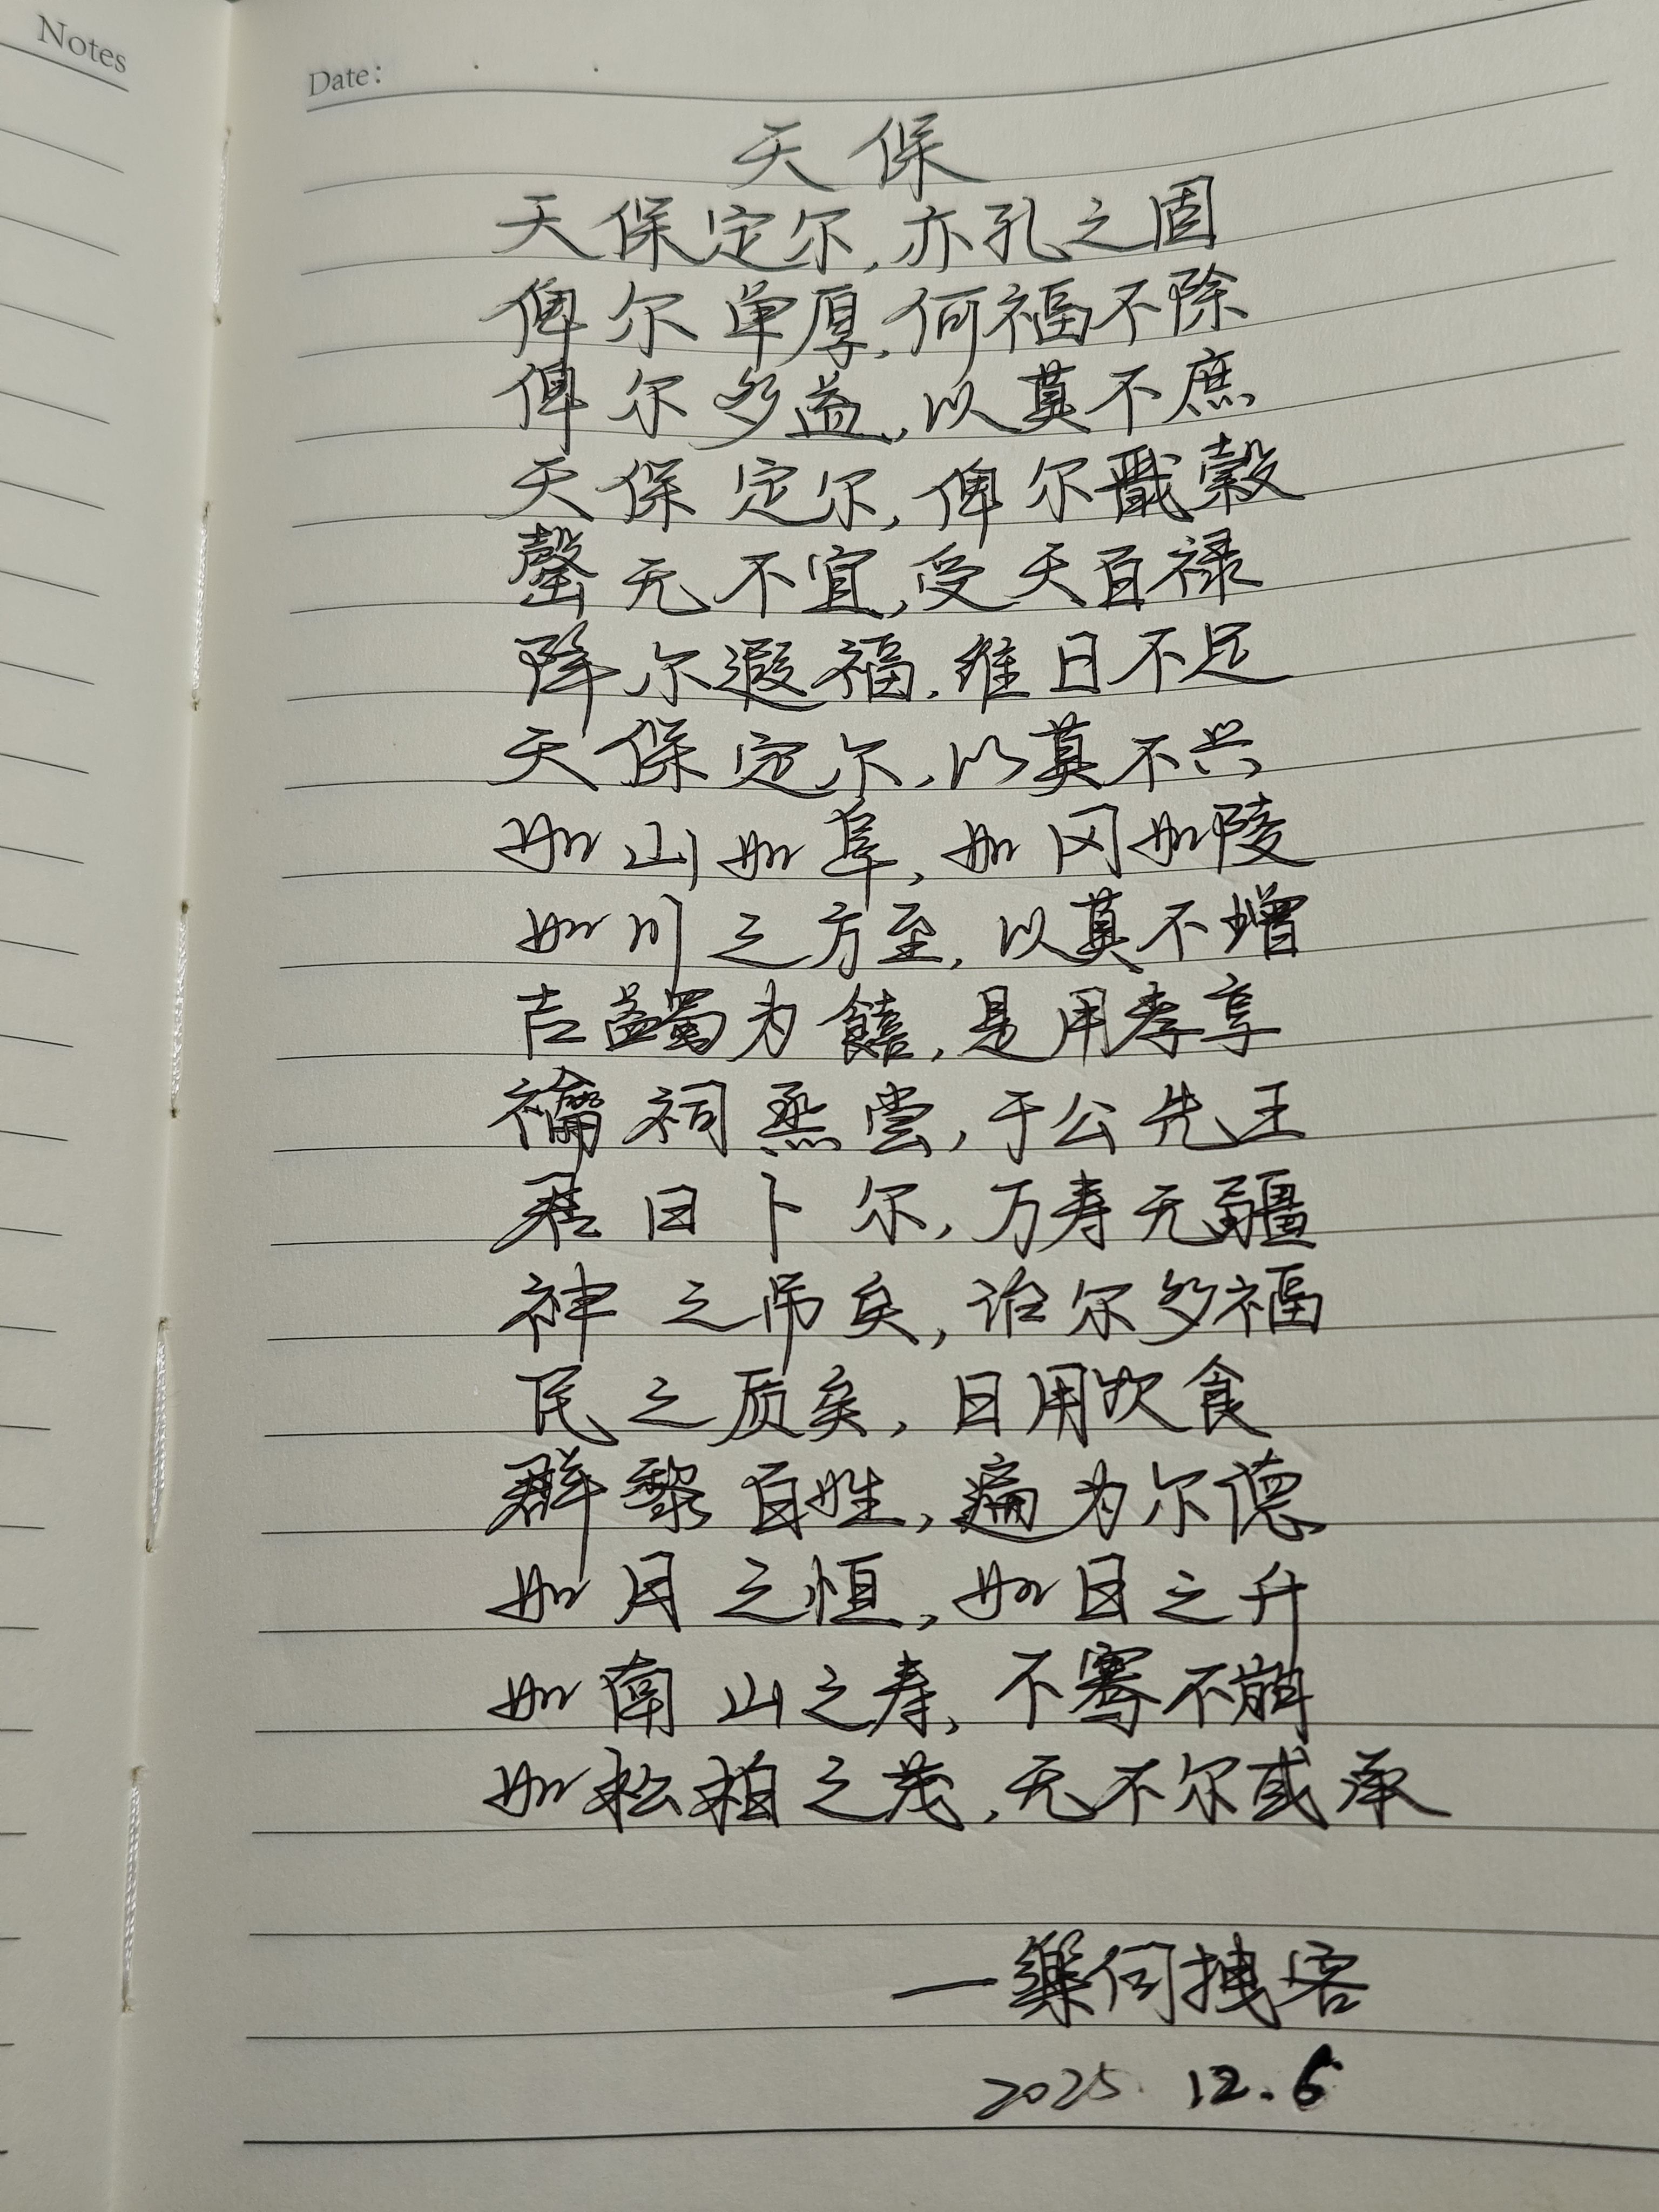 Notes
Date:
天保
天保定尔,亦孔之固
俾尔单厚,何福不除
俾尔多益,以莫不庶
天保定尔,俾尔戬榖
罄无不宜,受天百禄
降尔遐福,维日不足
天保定尔,以莫不兴
如山如阜,如冈如陵
如川之方至,以莫不增
吉蠲为饎,是用孝享
禴祠烝尝,于公先王
君曰卜尔,万寿无疆
神之吊矣,诒尔多福
民之质矣,日用饮食
群黎百姓,遍为尔德
如月之恒,如日之升
如南山之寿,不骞不崩
如松柏之茂,无不尔或承
一 伺拽客
2025.12.6